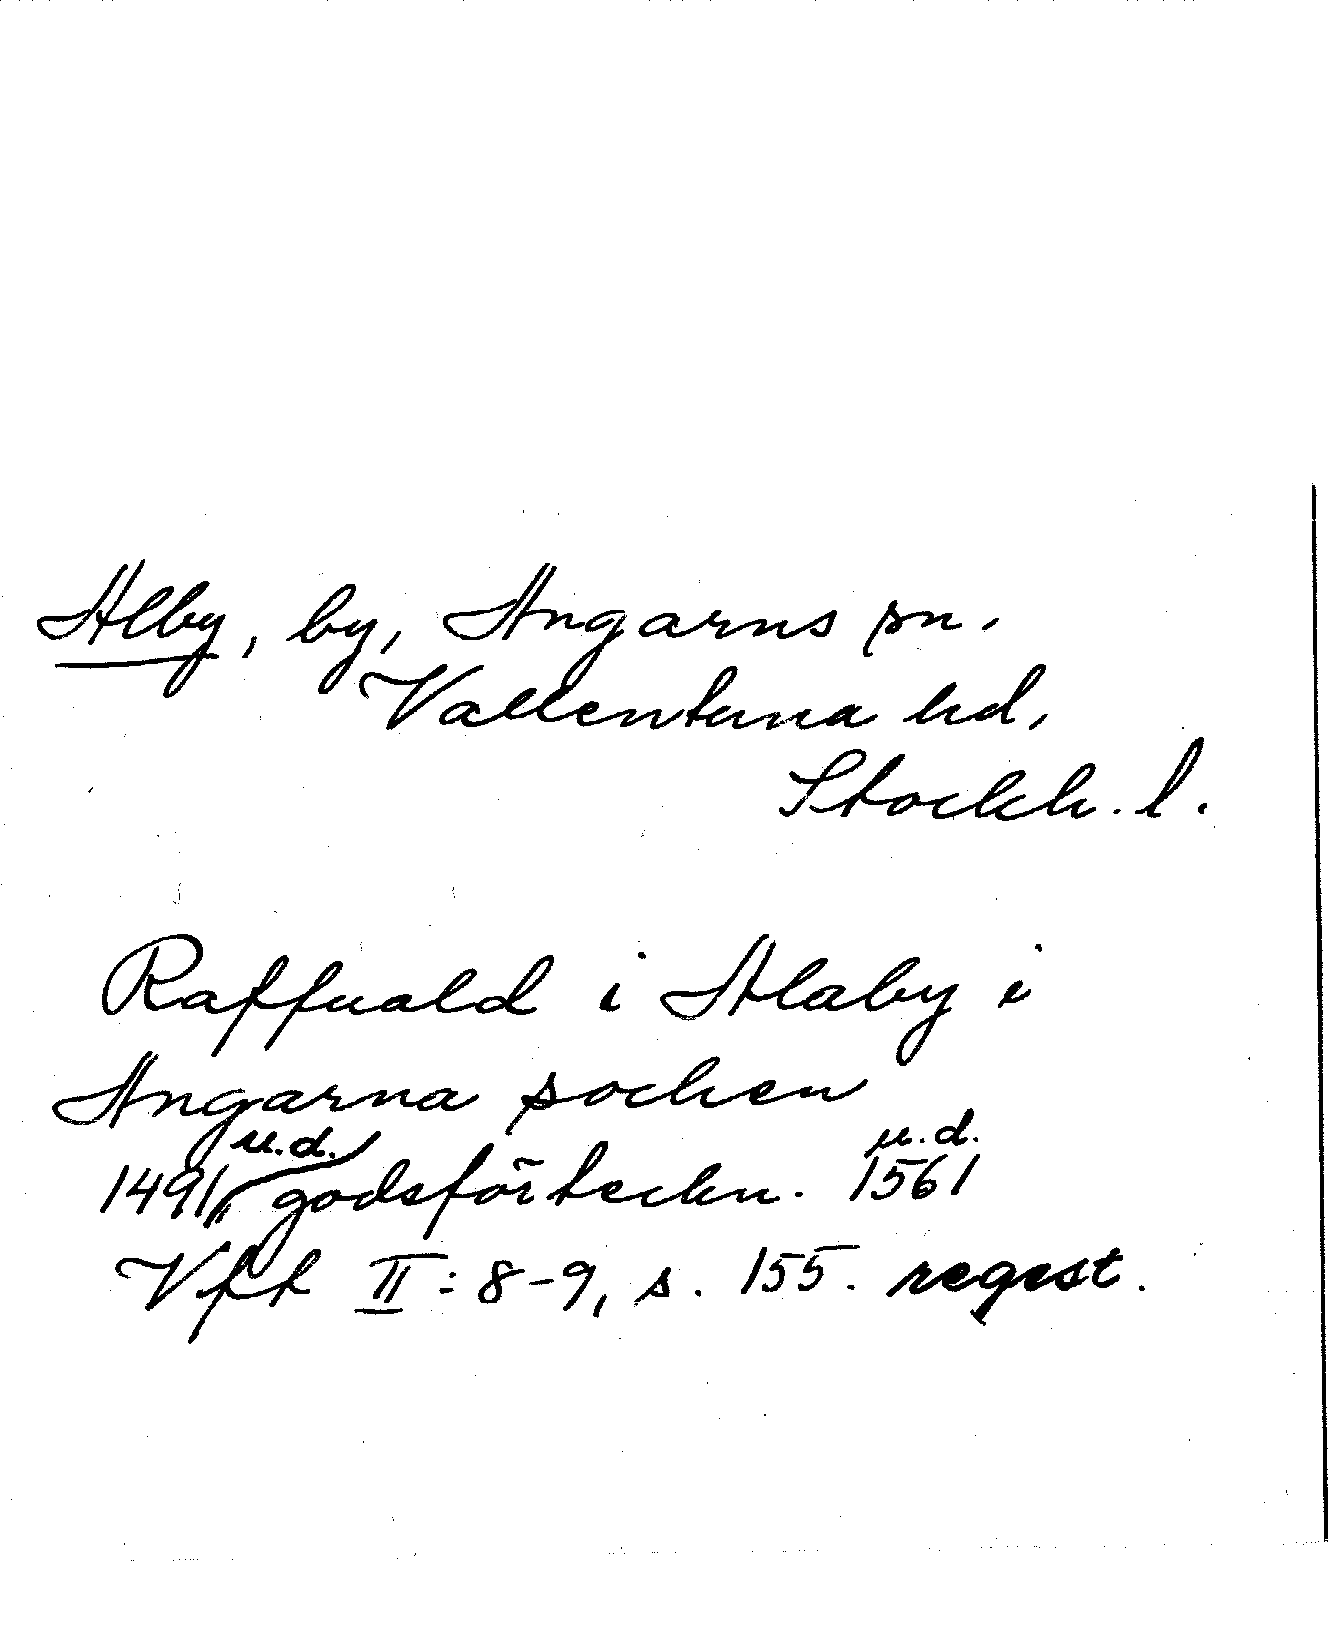 Alby, by, Angarns sn.
Vallentuna hd,
Stockh. l.
Raffuald i Alaby i
Angarna sochen
1491 u.d. godsförteckn. 1561 u.d.
Vft II: 8-9, s. 155. regest.